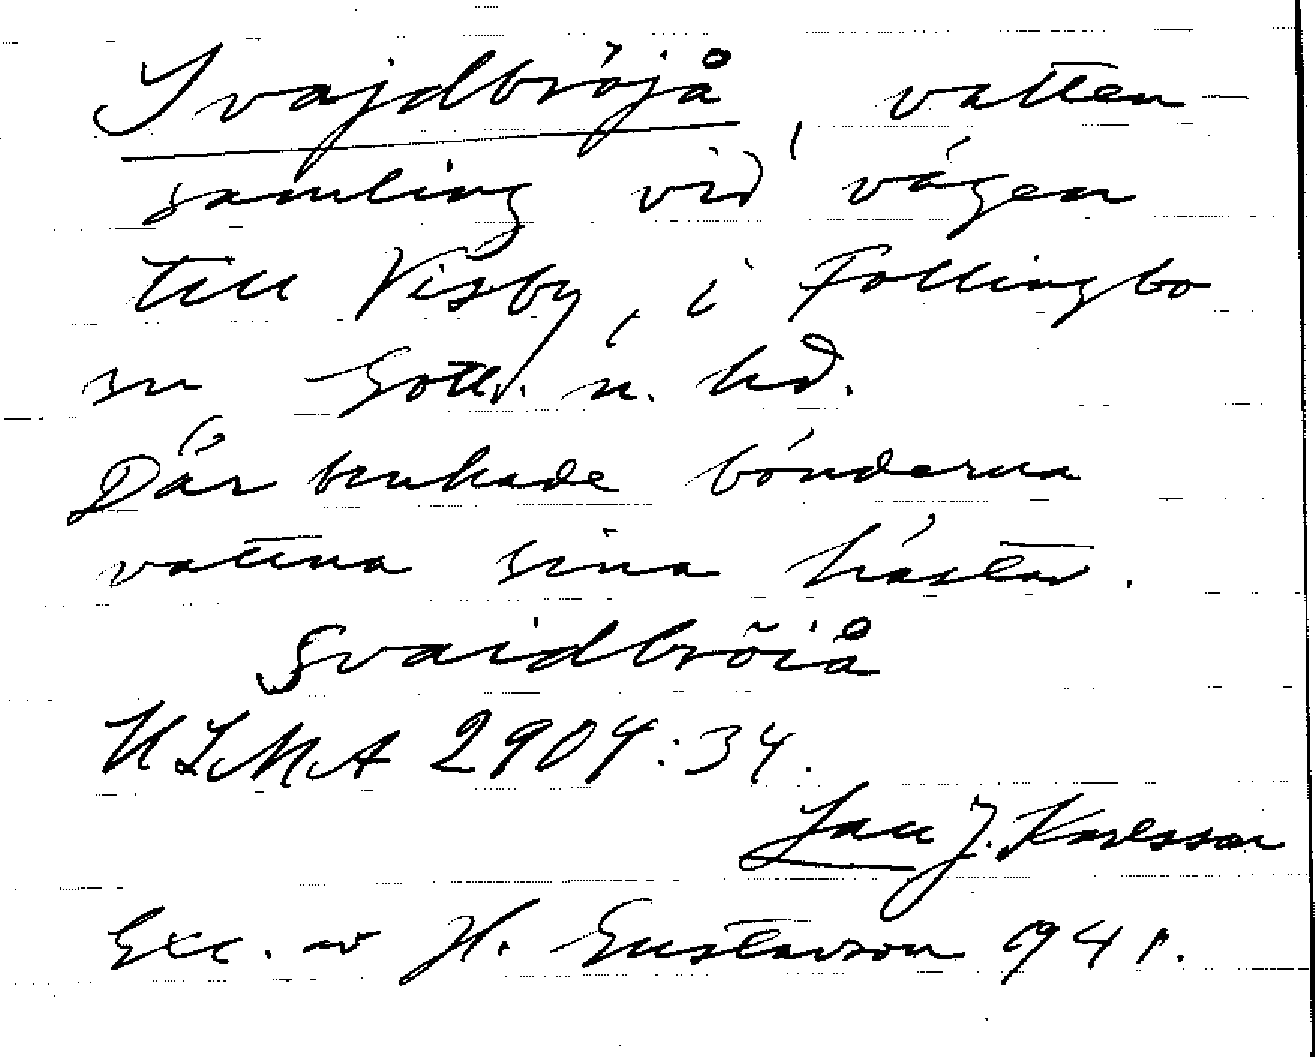 Svajdbröjå, vatten-
samling vid vägen
till Visby, i Follingbo
sn Gotl. n. hd.
Där brukade bönderna
vattna sina hästar.
Svaidbröiå
ULMA 2904:34.
J. Karlsson
Exc. av H. Gustavson 1941.